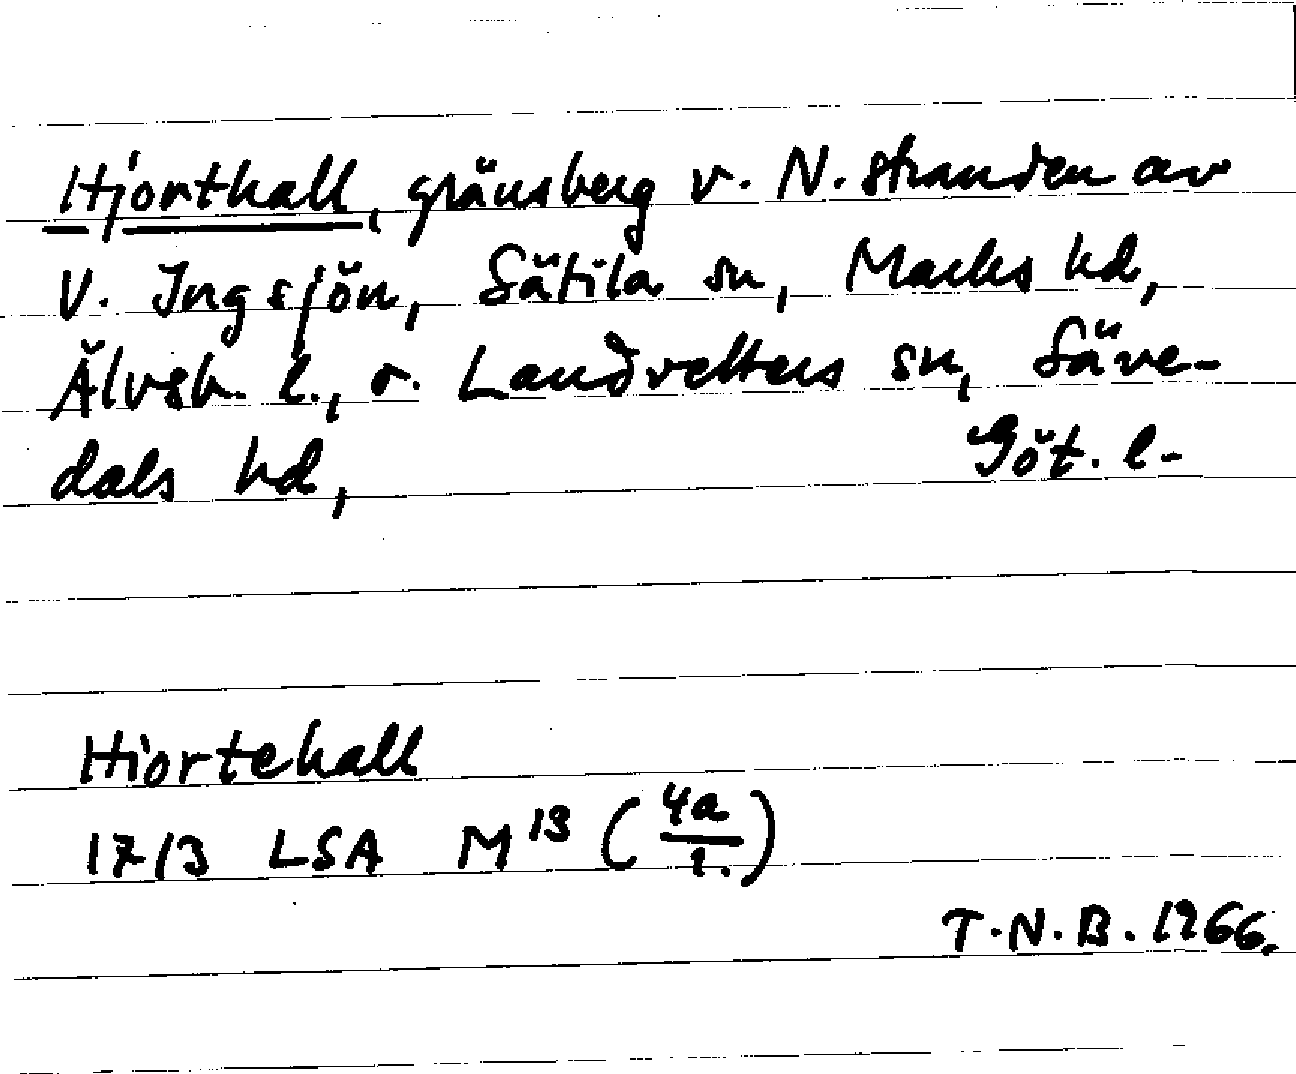 Hjorthall, gränsberg v. N. stranden av
V. Ingsjön, Sätila sn, Marks hd,
Älvsb. l., o. Landvetters sn, Säve-
dals hd, Göt. l.
Hiortehall
1713 LSA M 13 (4a/1.)
T.N.B. 1966.